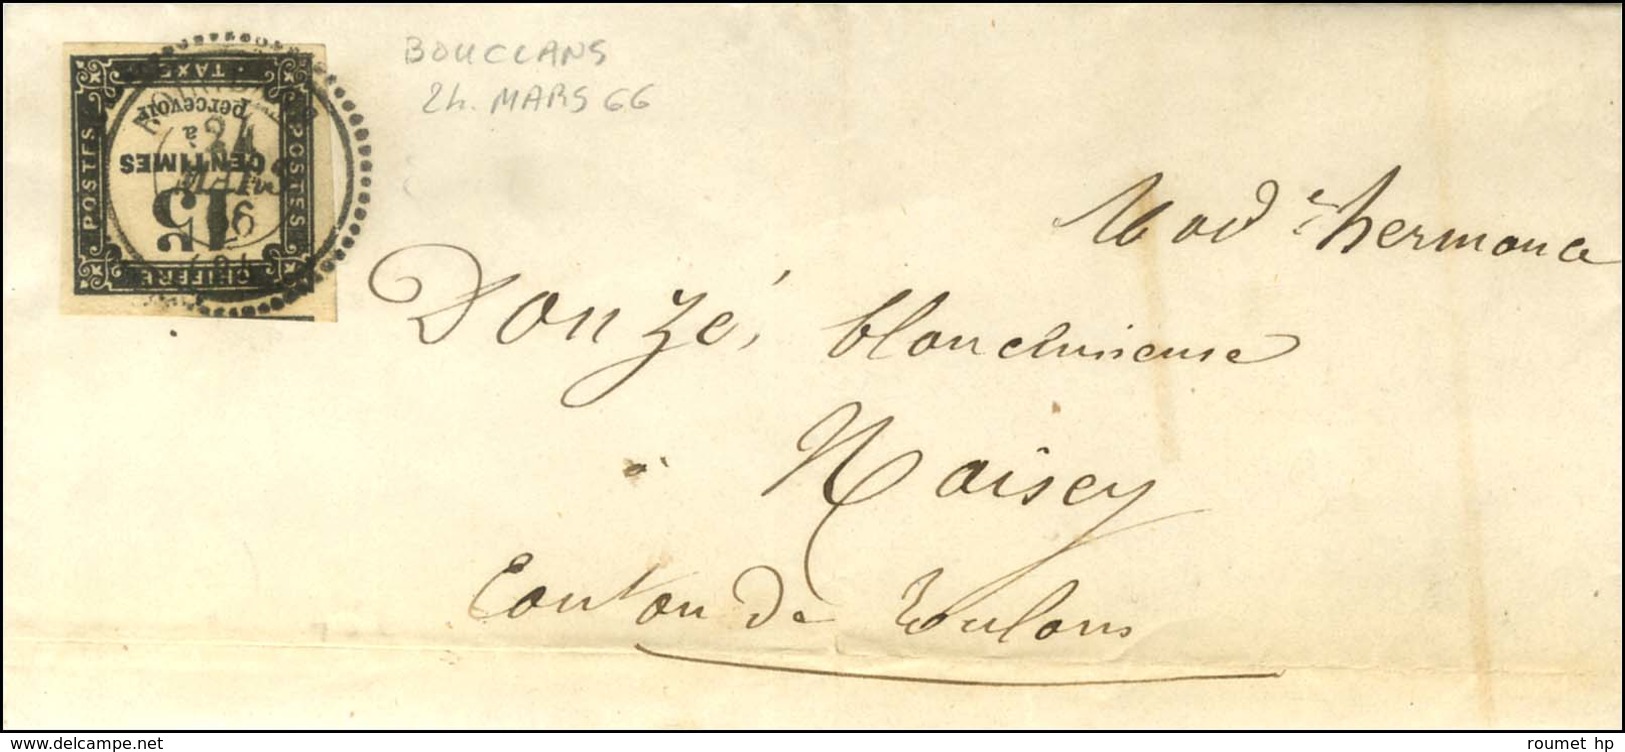 BOUCLANS
24. MARS 66
CHIFFRE
TAXE
POSTES
POSTES
15
CENTIMES
à
percevoir
24
MARS
66
Mad e hermance
Donzé, blanchisseuse
à Naisey
Canton de Roulans
© delcampe.net
roumet_hp